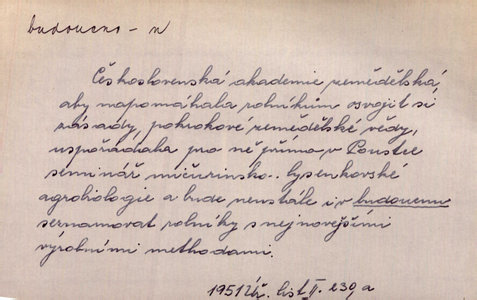 budoucno - n
Československá akademie zemědělská,
aby napomáhala rolníkům osvojit si
zásady, pokrokové zemědělské vědy,
uspořádala pro ně přímo v
seminář mičurinsko-lysenkovské
agrobiologie a bude neustále i v budoucnu
seznamovat rolníky s nejnovějšími
výrobními methodami.
1951 list II. 239 a